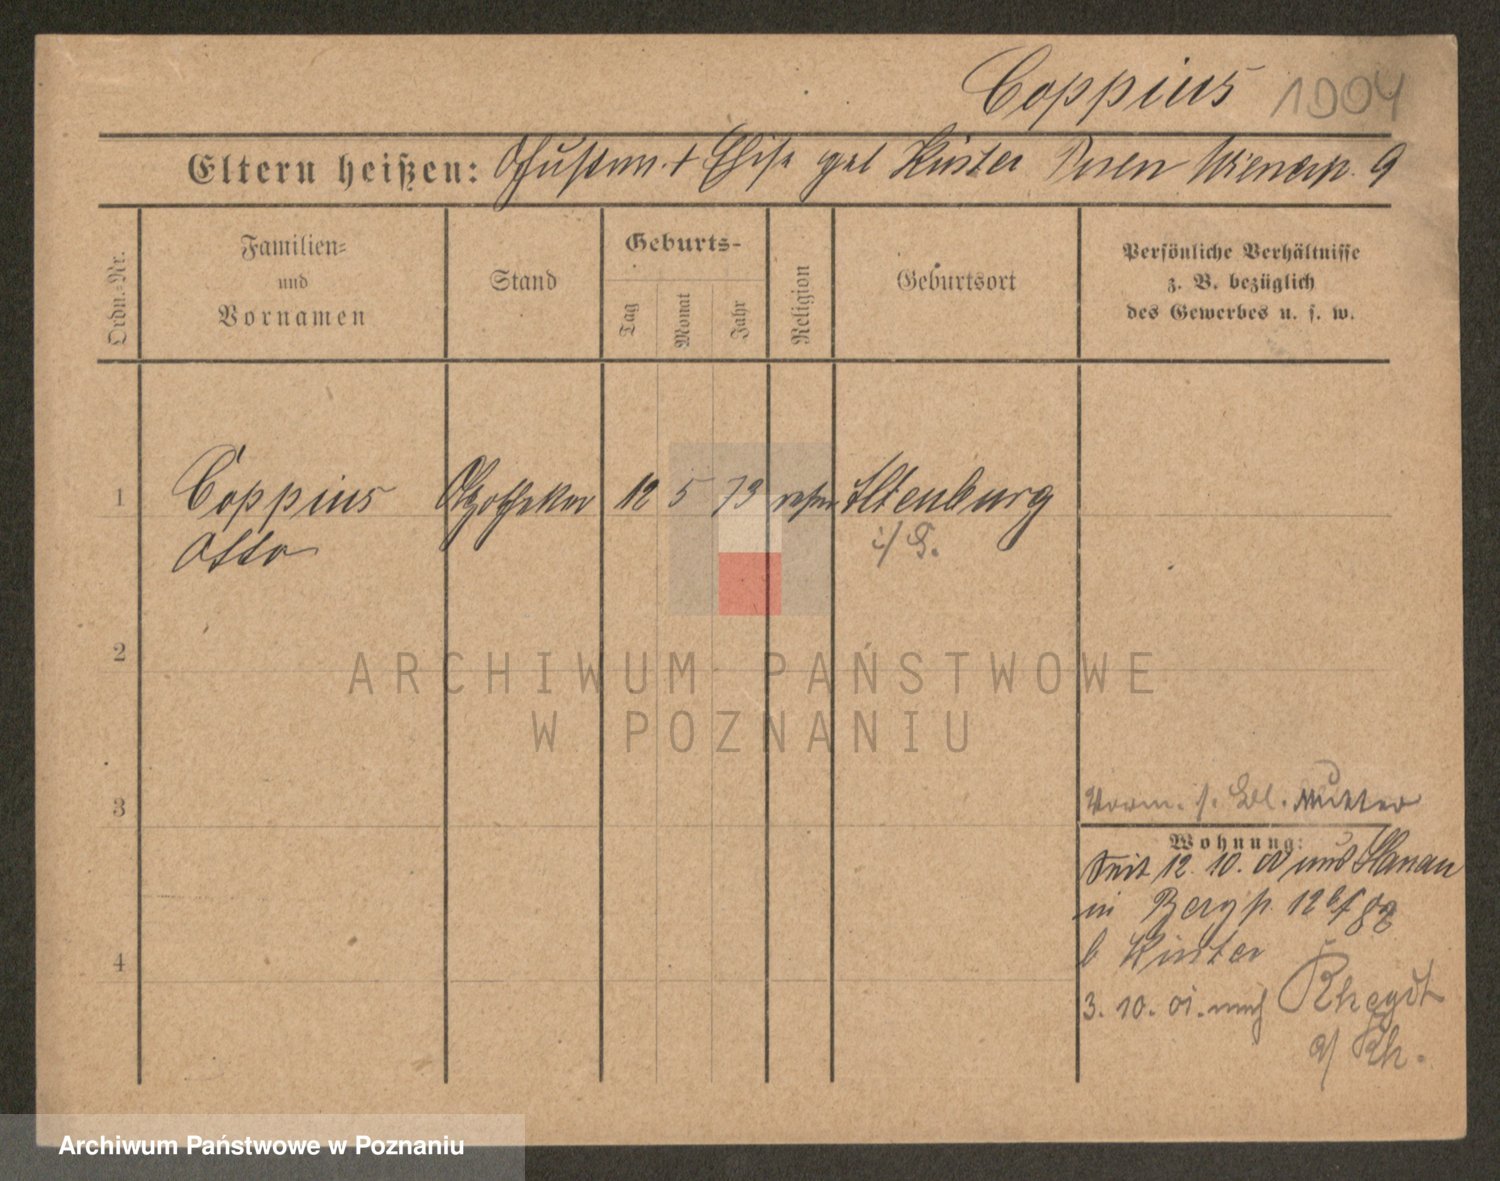 Coppius 1904
Eltern heißen: Gustav + Elise geb Küster Posen Wienerp. 9
Ordn.-Nr.
Familien-
und
Vornamen
Stand
Geburts-
Tag
Monat
Jahr
Religion
Geburtsort
Persönliche Verhältnisse
z. B. bezüglich
des Gewerbes u. s. w.
1 Coppius Apotheker 12 5 73 Altenburg
Otto
2
ARCHIWUM PAŃSTWOWE
W POZNANIU
3
Mutter
Wohnung:
Seit 12. 10. 00 aus Hanau
in Bergstr. 12b
b Küster
4
3. 10. 01. nach Rheydt
a/ Rh.
Archiwum Państwowe w Poznaniu